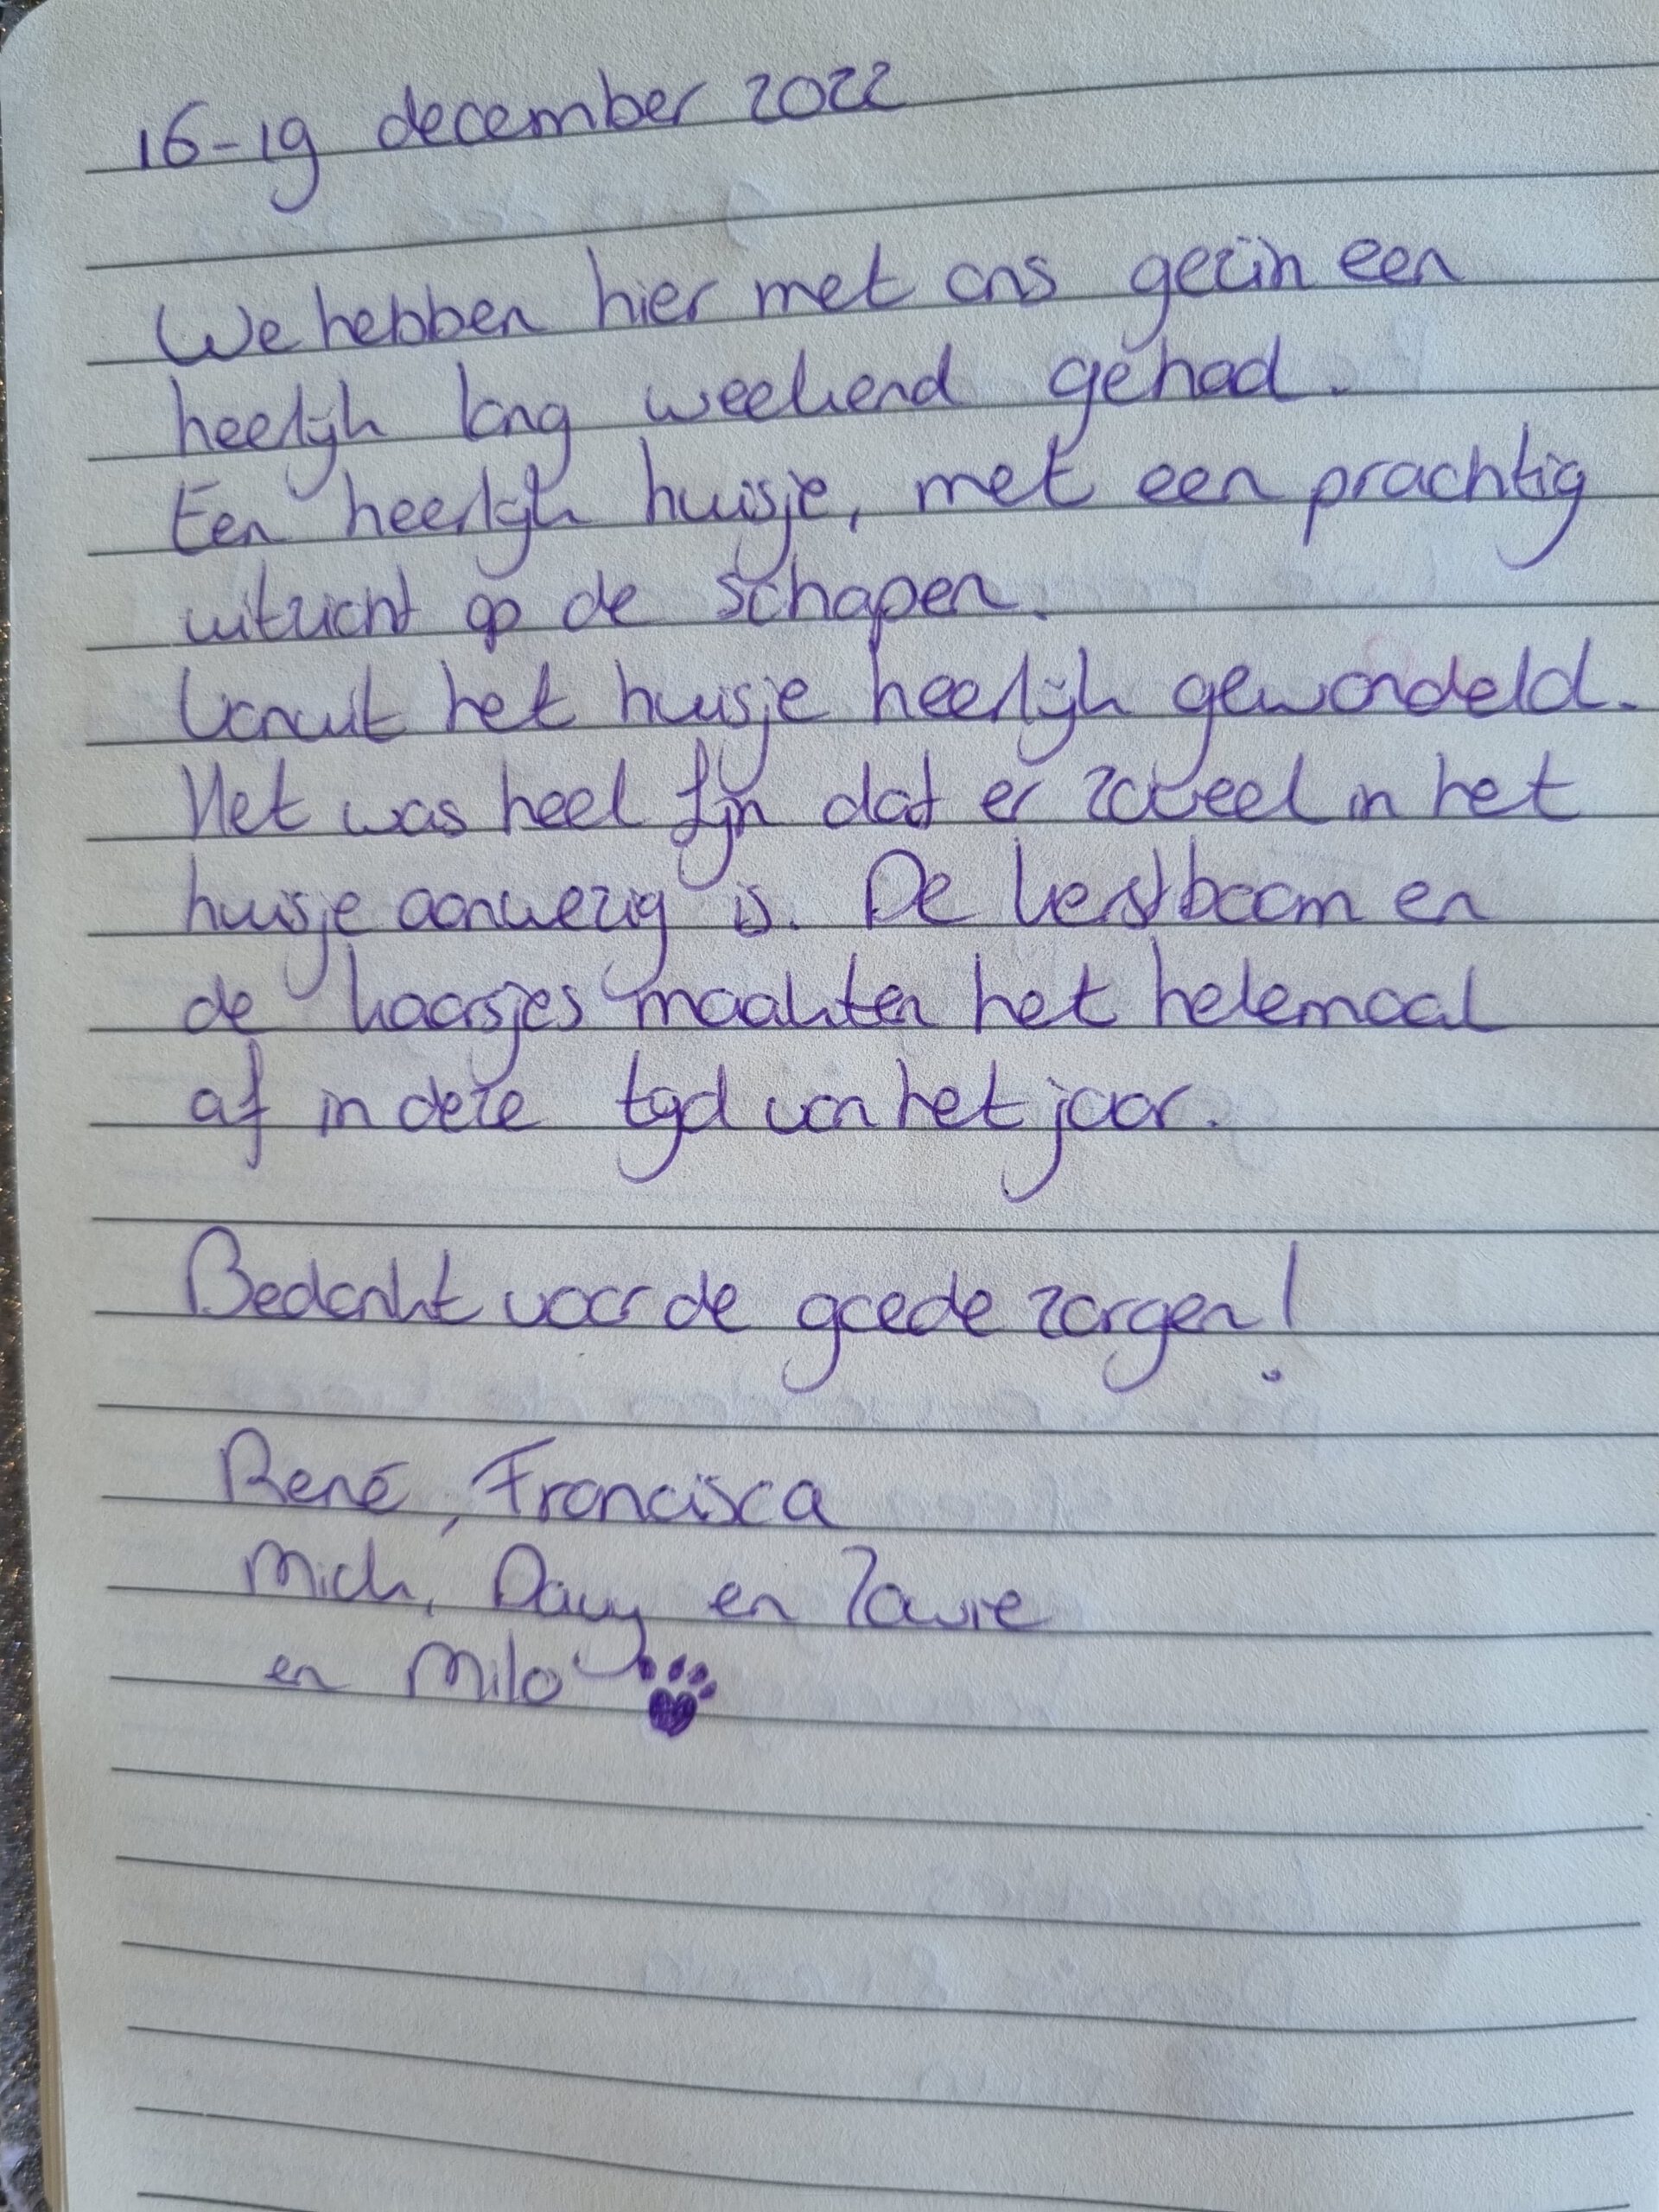 16-19 december 2022
We hebben hier met ons gezin een
heerlijk lang weekend gehad.
Een heerlijk huisje, met een prachtig
uitzicht op de schapen.
Vanuit het huisje heerlijk gewandeld.
Het was heel fijn dat er zoveel in het
huisje aanwezig is. De kerstboom en
de kaarsjes maakten het helemaal
af in deze tijd van het jaar.
Bedankt voor de goede zorgen!
René, Francisca
Mick, Davy en
en Milo